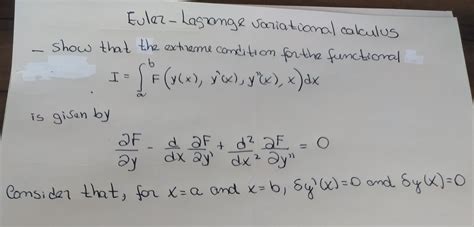 Euler-Lagrange variational calculus
- Show that the extreme condition for the functional
I = ∫_a^b F(y(x), y'(x), y''(x), x) dx
is given by
∂F/∂y - d/dx ∂F/∂y' + d²/dx² ∂F/∂y'' = 0
Consider that, for x=a and x=b, δy'(x)=0 and δy(x)=0